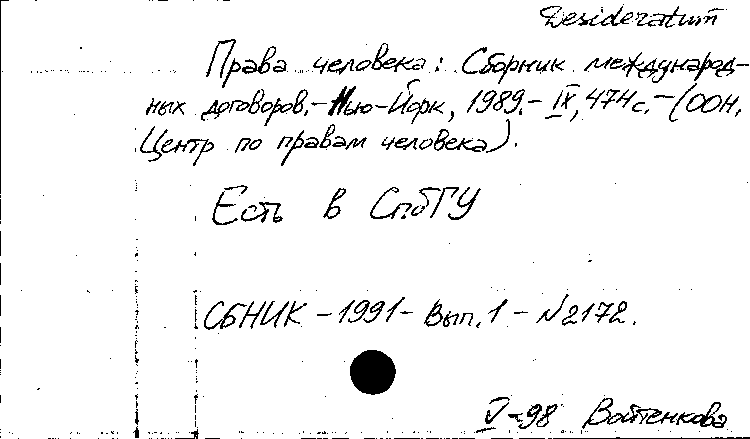 Desideratum
Права человека: Сборник международ-
ных договоров.- Нью-Йорк, 1989.- IX, 474 с. - (ООН,
Центр по правам человека).
Есть в СпбГУ
СБНИК - 1991 - Вып. 1 - N2172.
V-98 Войтенкова